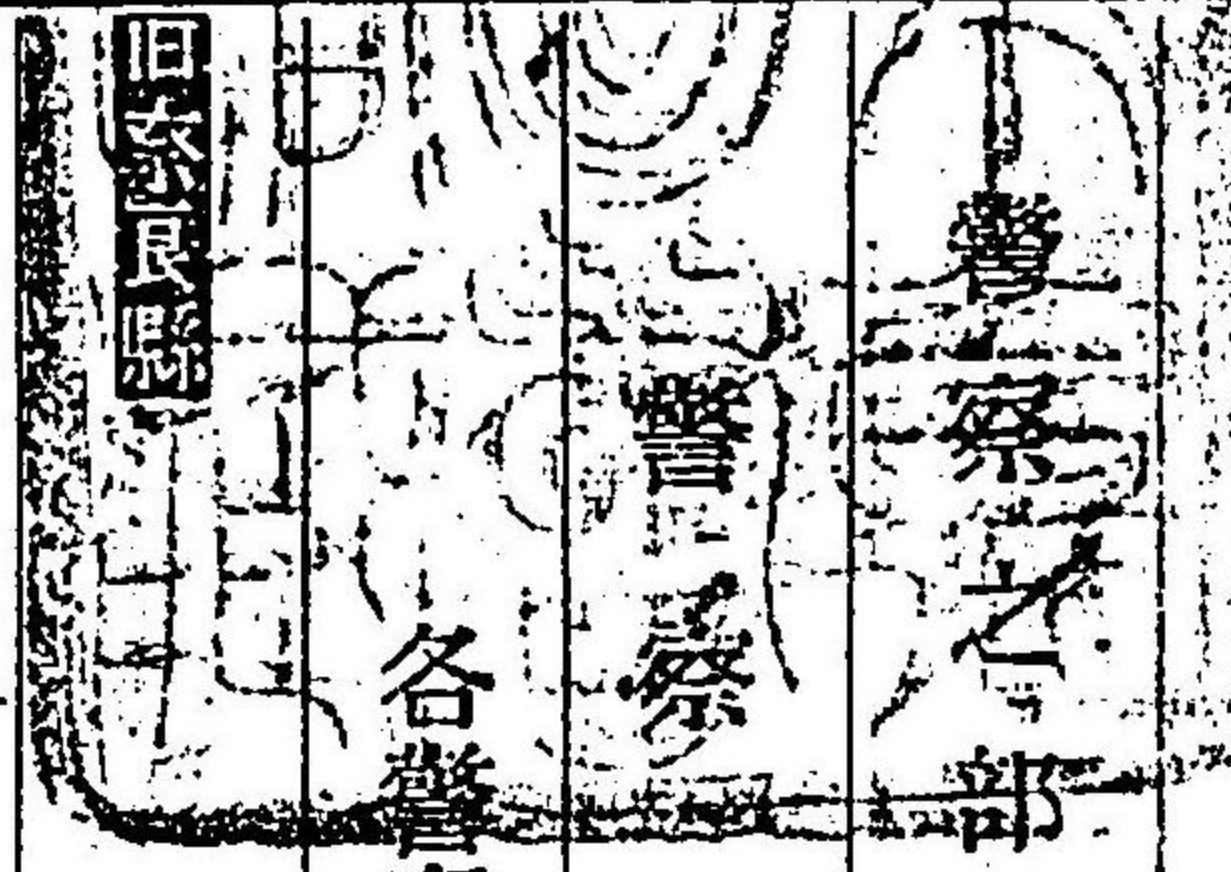 警察部
警察
各警
旧奈良縣